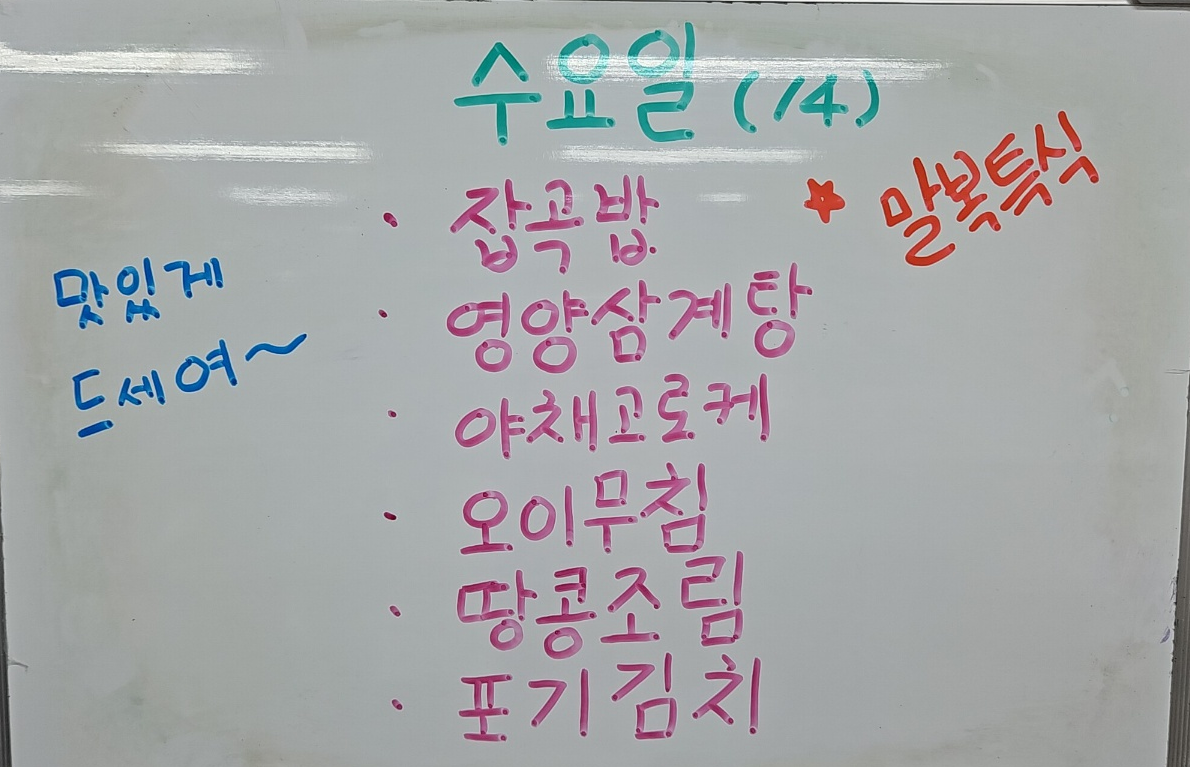 수요일 (14)
★ 말복특식
맛있게
드세여~
· 잡곡밥
· 영양삼계탕
· 야채고로케
· 오이무침
· 땅콩조림
· 포기김치